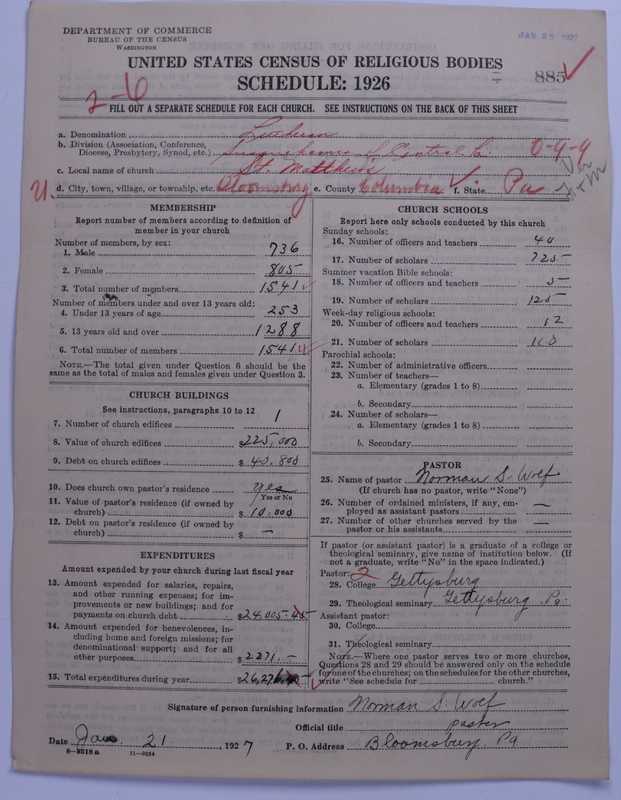 DEPARTMENT OF COMMERCE
BUREAU OF THE CENSUS
WASHINGTON
JAN 25 1927
UNITED STATES CENSUS OF RELIGIOUS BODIES
SCHEDULE: 1926
885
2-6
FILL OUT A SEPARATE SCHEDULE FOR EACH CHURCH. SEE INSTRUCTIONS ON THE BACK OF THIS SHEET
a. Denomination Lutheran
b. Division (Association, Conference, Diocese, Presbytery, Synod, etc.) Susquehanna of Central Pa. 0-4-9
c. Local name of church St. Matthew's
U. d. City, town, village, or township, etc. Bloomsburg e. County Columbia f. State Pa
MEMBERSHIP
Report number of members according to definition of
member in your church
Number of members, by sex:
1. Male 736
2. Female 805
3. Total number of members 1541
Number of members under and over 13 years old:
4. Under 13 years of age 253
5. 13 years old and over 1288
6. Total number of members 1541
NOTE.—The total given under Question 6 should be
same as the total of males and females given under Question 3.
CHURCH BUILDINGS
See instructions, paragraphs 10 to 12
7. Number of church edifices 1
8. Value of church edifices $225,000
9. Debt on church edifices $40,800
10. Does church own pastor's residence Yes
Yes or No
11. Value of pastor's residence (if owned by
church) $10,000
12. Debt on pastor's residence (if owned by
church) $ —
EXPENDITURES
Amount expended by your church during last fiscal year
13. Amount expended for salaries, repairs,
and other running expenses; for im-
provements or new buildings; and for
payments on church debt $24,005.45
14. Amount expended for benevolences, in-
cluding home and foreign missions; for
denominational support; and for all
other purposes $2271.—
15. Total expenditures during year $26,276
CHURCH SCHOOLS
Report here only schools conducted by this church
Sunday schools:
16. Number of officers and teachers 40
17. Number of scholars 725
Summer vacation Bible schools:
18. Number of officers and teachers 5
19. Number of scholars 125
Week-day religious schools:
20. Number of officers and teachers 12
21. Number of scholars 110
Parochial schools:
22. Number of administrative officers
23. Number of teachers—
a. Elementary (grades 1 to 8)
b. Secondary
24. Number of scholars—
a. Elementary (grades 1 to 8)
b. Secondary
PASTOR
25. Name of pastor Norman S. Wolf
(If church has no pastor, write "None")
26. Number of ordained ministers, if any, em-
ployed as assistant pastors —
27. Number of other churches served by the
pastor or his assistants —
If pastor (or assistant pastor) is a graduate of a college or
theological seminary, give name of institution below. (If
not a graduate, write "No" in the space indicated.)
Pastor: 2
28. College Gettysburg
29. Theological seminary Gettysburg Pa.
Assistant pastor:
30. College
31. Theological seminary
NOTE.—Where one pastor serves two or more churches,
Questions 28 and 29 should be answered only on the schedule
for one of the churches; on the schedules for the other churches,
write "See schedule for ........ church."
Signature of person furnishing information Norman S. Wolf
Official title pastor
Date Jan. 21, 1927 P. O. Address Bloomsburg Pa
8-3518a 11-9034